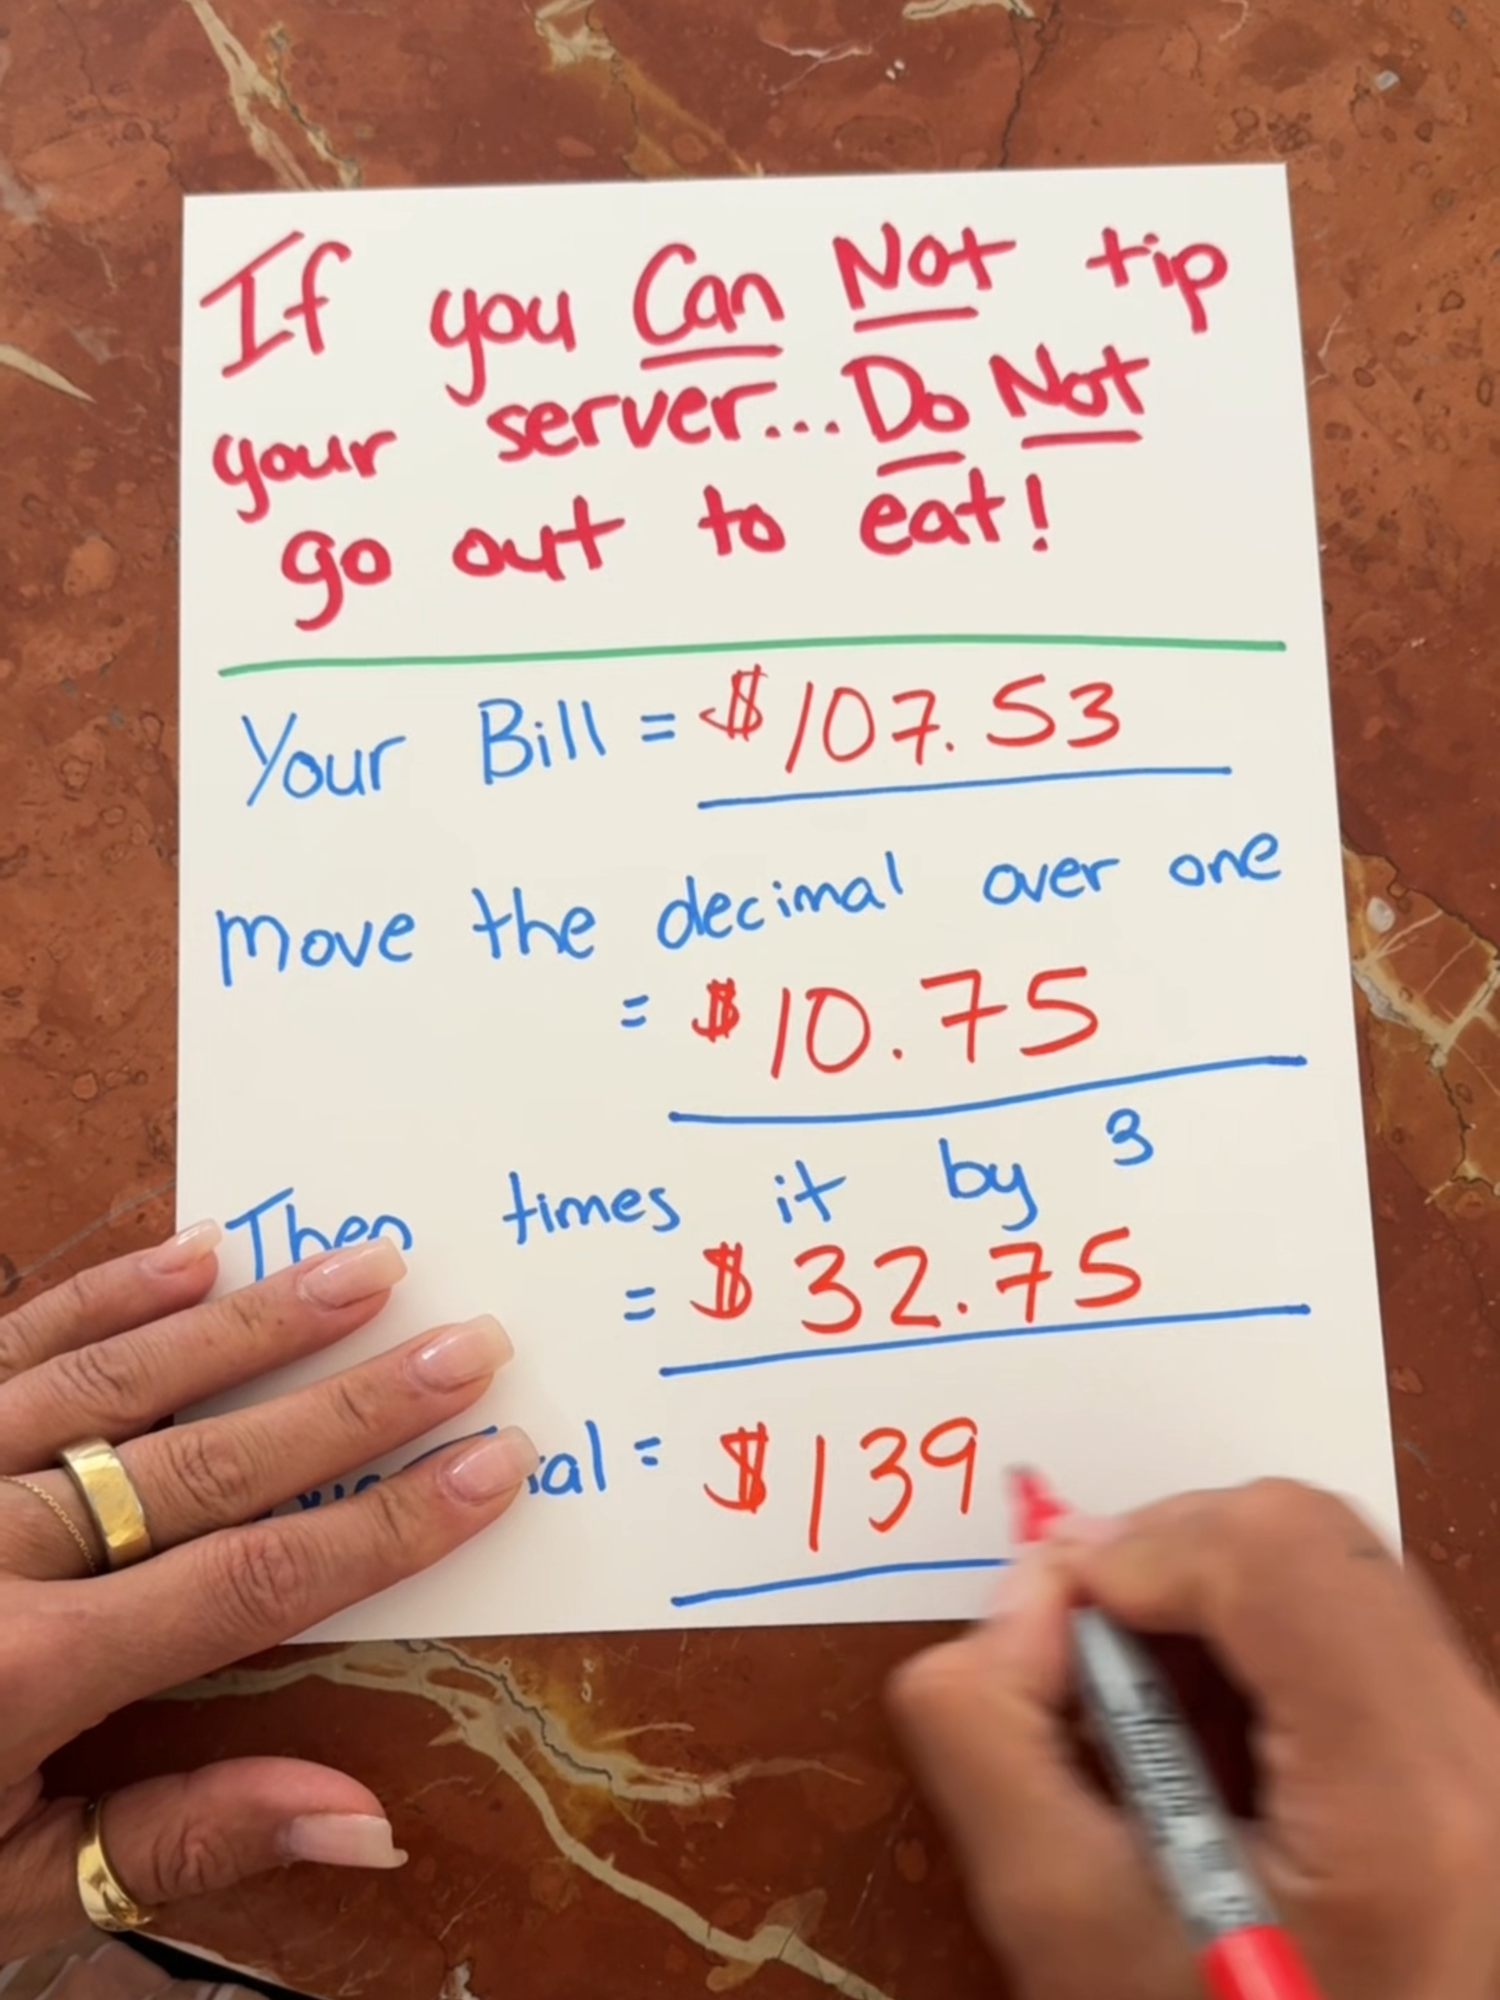 If you Can Not tip
your server... Do Not
go out to eat!
Your Bill = $107.53
Move the decimal over one
= $10.75
Then times it by 3
= $32.75
= $139